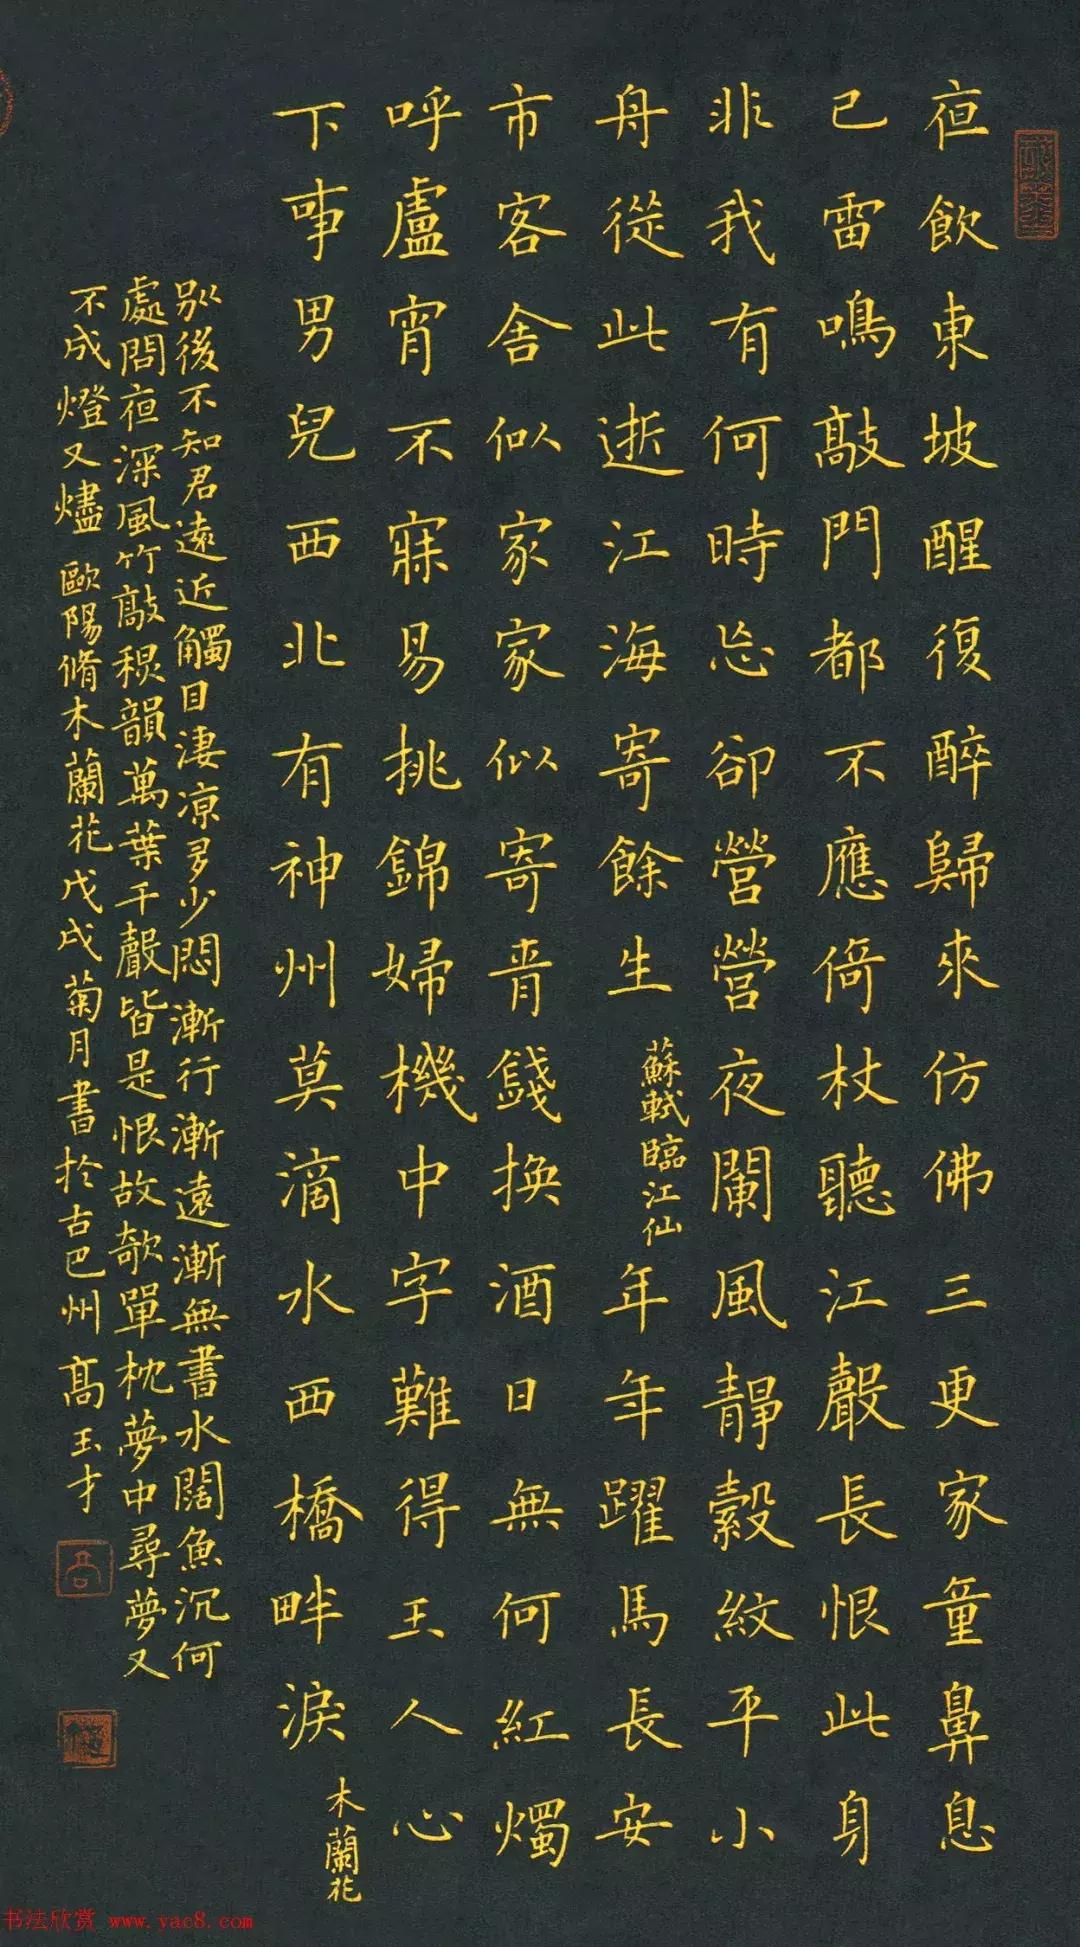 夜飲東坡醒復醉歸來仿佛三更家童鼻息
已雷鳴敲門都不應倚杖聽江聲長恨此身
非我有何時忘卻營營夜闌風靜縠紋平小
舟從此逝江海寄餘生 蘇軾臨江仙 年年躍馬長安
市客舍似家家似寄青錢換酒日無何紅燭
呼盧宵不寐易挑錦婦機中字難得玉人心
下事男兒西北有神州莫滴水西橋畔淚 木蘭花
別後不知君遠近觸目淒凉多少悶漸行漸遠漸無書水闊魚沉何
處問夜深風竹敲秋韻萬葉千聲皆是恨故欹單枕夢中尋夢又
不成燈又燼 歐陽脩木蘭花戊戌菊月書於古巴州 高玉才
书法欣赏 www.yac8.com